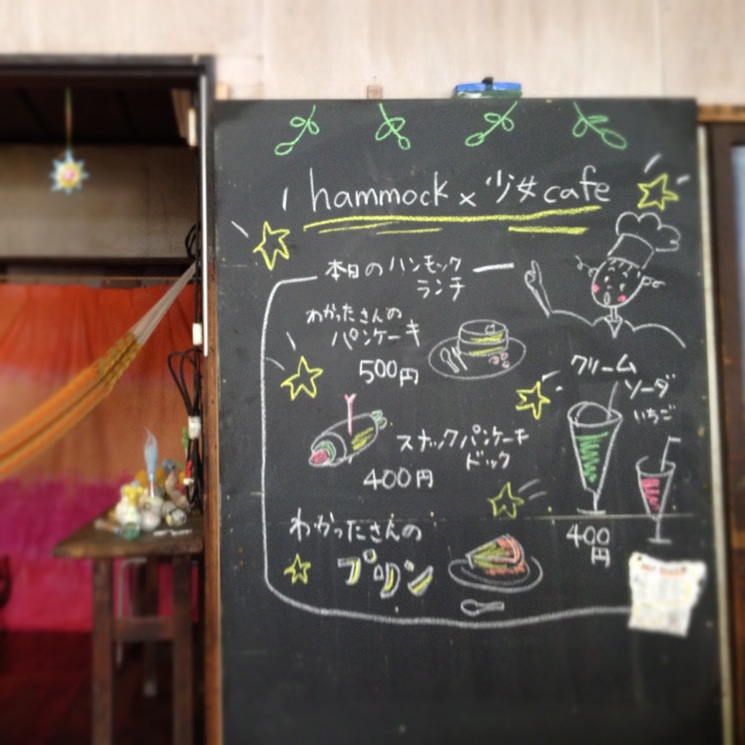 hammock x 少女cafe
本日のハンモック
ランチ
わかったさんの
パンケーキ
500円
スナックパンケーキ
ドック
400円
わかったさんの
プリン
クリーム
ソーダ
いちご
400
円